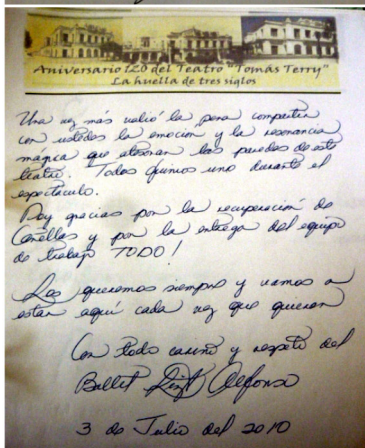 Aniversario 120 del Teatro "Tomás Terry"
La huella de tres siglos
Una vez más valió la pena compartir
con ustedes la emoción y la resonancia
mágica que atesoran las paredes de este
teatro. Todos fuimos uno durante el
espectáculo.
Doy gracias por la recuperación de
Cañellas y por la entrega del equipo
de trabajo TODO!
Los queremos siempre y vamos a
estar aquí cada vez que quieran
Con todo cariño y respeto del
Ballet Lizt Alfonso
3 de Julio del 2010